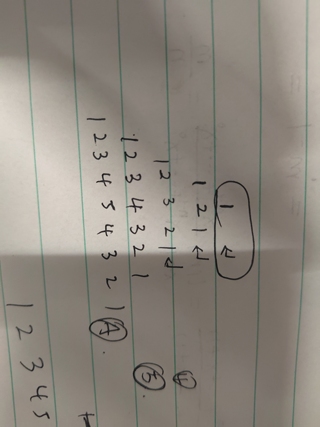 1 ↵
1 2 1 ↵
1 2 3 2 1 ↵
1 2 3 4 3 2 1
1 2 3 4 5 4 3 2 1 Ⓐ.
1 2 3 4 5